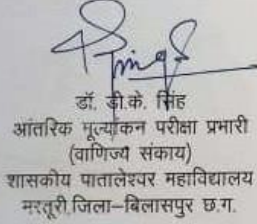 डॉ. डी.के. सिंह
आंतरिक मूल्यांकन परीक्षा प्रभारी
(वाणिज्य संकाय)
शासकीय पातालेश्वर महाविद्यालय
मस्तूरी,जिला–बिलासपुर छ.ग.